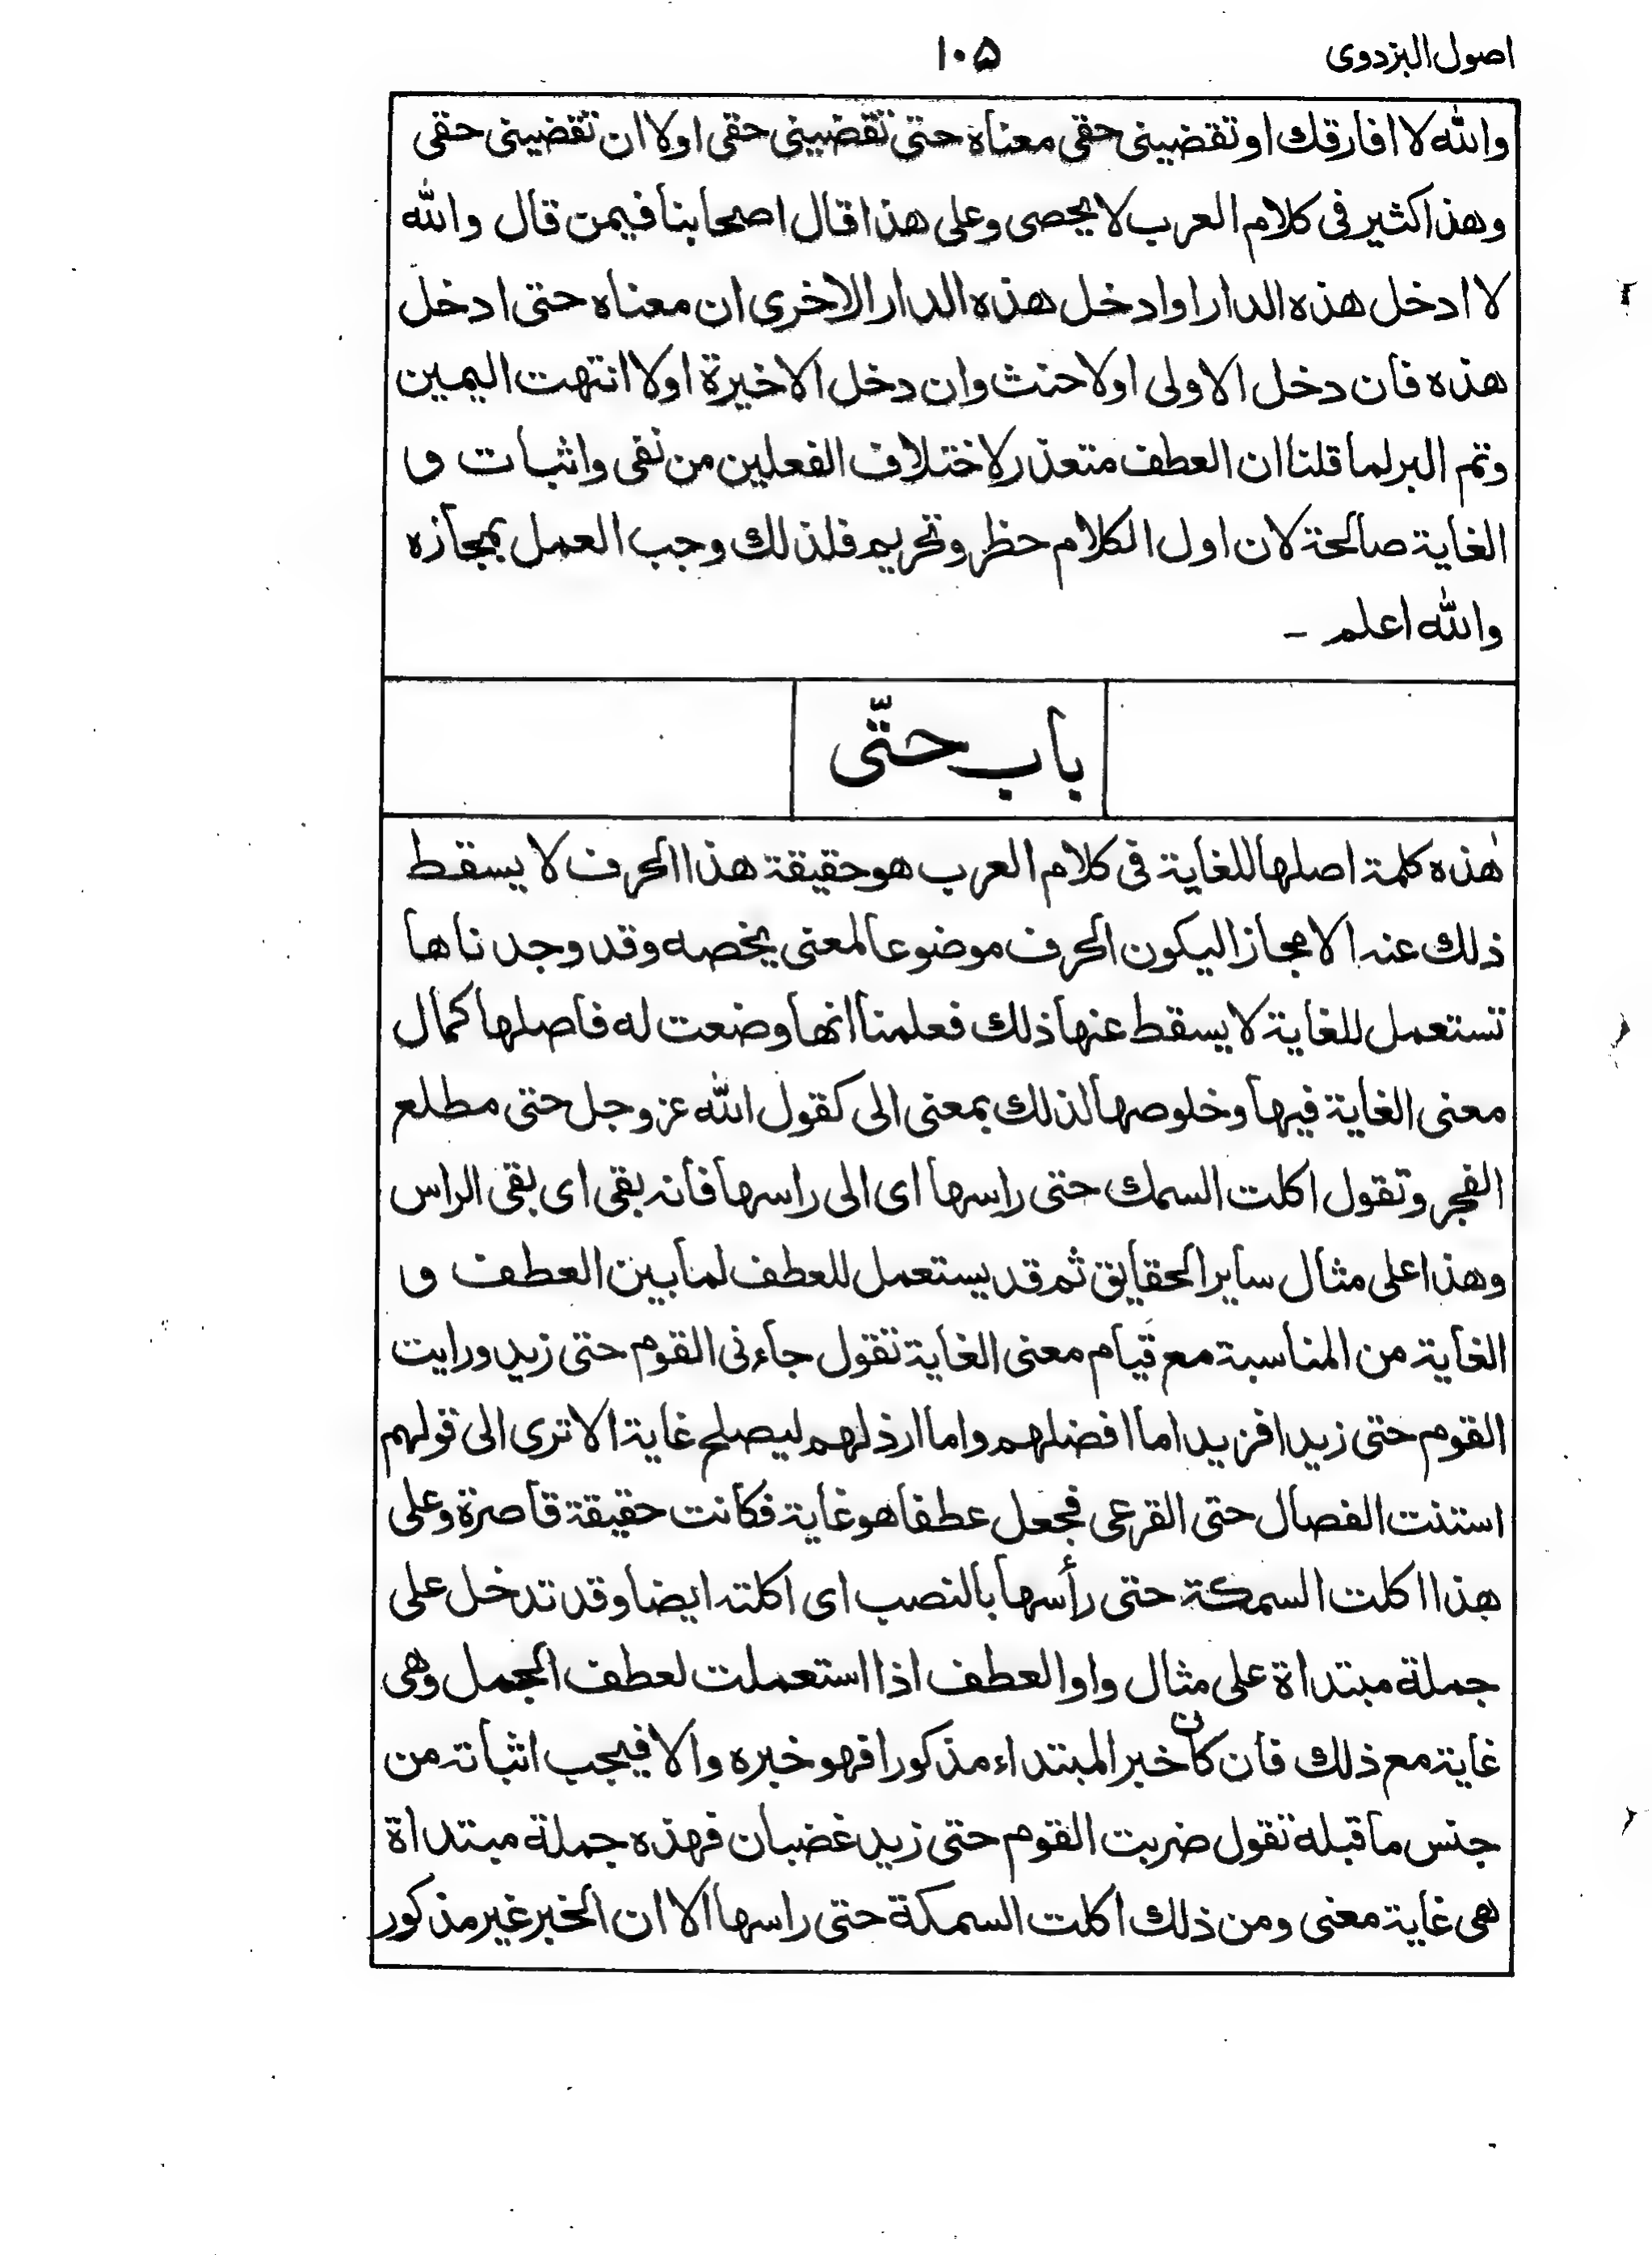 اصول البزدوی
۱۰۵
والله لا افارقك او تقضینی حقی معناه حتی تقضینی حقی او لا ان تقضینی حقی
وهذا كثیر فی كلام العرب لا یحصی وعلی هذا قال اصحابنا فیمن قال والله
لا ادخل هذه الدار او ادخل هذه الدار الاخری ان معناه حتی ادخل
هذه فان دخل الاولی اولا حنث وان دخل الاخیرة اولا انتهت الیمین
وتم البر لما قلنا ان العطف متعذر لاختلاف الفعلین من نفی واثبات و
الغایة صالحة لان اول الكلام حظر وتحریم فلذلك وجب العمل بمجازه
والله اعلم -
باب حتّی
هٰذه كلمة اصلها للغایة فی كلام العرب هو حقیقة هذا الحرف لا یسقط
ذلك عنه الا مجازا لیكون الحرف موضوعا لمعنی یخصه وقد وجدناها
تستعمل للغایة لا یسقط عنها ذلك فعلمنا انها وضعت له فاصلها كمال
معنی الغایة فیها وخلوصها لذلك بمعنی الی كقول الله عز وجل حتی مطلع
الفجر وتقول اكلت السمك حتی راسها ای الی راسها فانه بقی ای بقی الراس
وهذا علی مثال سایر الحقایق ثم قد یستعمل للعطف لما بین العطف و
الغایة من المناسبة مع قیام معنی الغایة تقول جاءنی القوم حتی زید ورایت
القوم حتی زیدا فزید اما افضلهم واما ارذلهم لیصلح غایة الا تری الی قولهم
استنت الفصال حتی القرعی فجعل عطفا هو غایة فكانت حقیقة قاصرة وعلی
هذا اكلت السمكة حتی رأسها بالنصب ای اكلته ایضا وقد تدخل علی
جملة مبتداة علی مثال واو العطف اذا استعملت لعطف الجمل وهی
غایة مع ذلك فان كان خبر المبتداء مذكورا فهو خبره والا فیجب اثباته من
جنس ما قبله تقول ضربت القوم حتی زید غضبان فهذه جملة مبتداة
هی غایة معنی ومن ذلك اكلت السمكة حتی راسها الا ان الخبر غیر مذكور